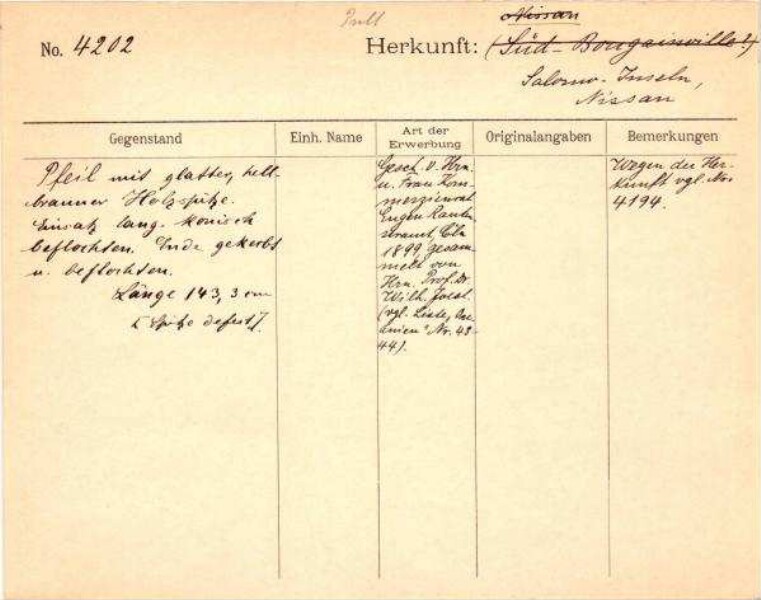 Nissan
No. 4202
Herkunft: (Süd-Bougainville?)
Salomo-Inseln,
Nissan
Gegenstand
Einh. Name
Art der
Erwerbung
Originalangaben
Bemerkungen
Pfeil mit glatter, hell-
brauner Holzspitze.
Einsatz lang-konisch
beflochten. Ende gekerbt
u. beflochten.
Länge 143,3 cm
[Spitze defect]
Gesch. v. Hrn.
u. Frau Kom-
merzienrat
Eugen Rauten-
strauch, Cöln
1899, gesam-
melt von
Hrn. Prof. Dr.
Wilh. Joest.
(vgl. Liste, Oce-
anien" Nr. 43-
44).
Wegen der Her-
kunft vgl. No.
4194.